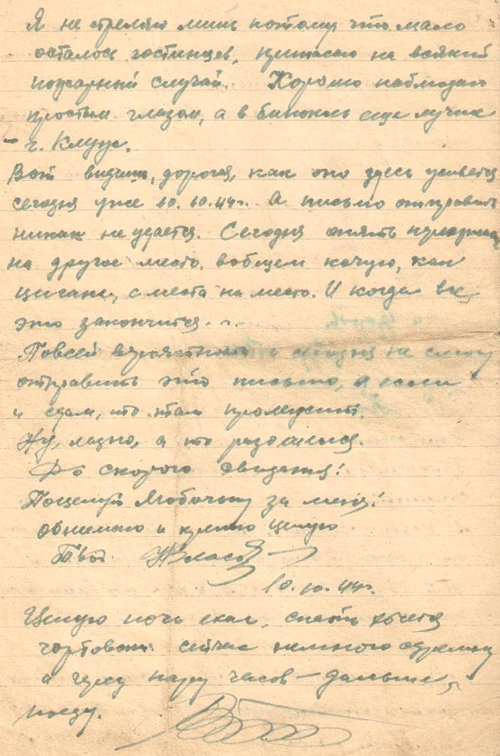 Я не стреляю лишь потому что мало
осталось гостинцев, припасаю на всякий
пожарный случай. Хорошо наблюдаю
простым глазом, а в бинокль еще лучше
г. Клуж.
Вот видишь, дорогая, как оно здесь
сегодня уже 10.10.44г. А письмо отправить
никак не удается. Сегодня опять
на другое место, вобщем кочую, как
цыган, с места на место. И когда все
это закончится...
По всей вероятности и сегодня не смогу
отправить это письмо, а если
и сдам, то там
Ну, ладно, а то
До скорого свидания!
Поцелуй Любочку за меня!
обнимаю и крепко целую
Твой
10.10.44г.
Целую ночь ехал, спать хочется
чертовски сейчас немного
а через пару часов — дальше
поеду.